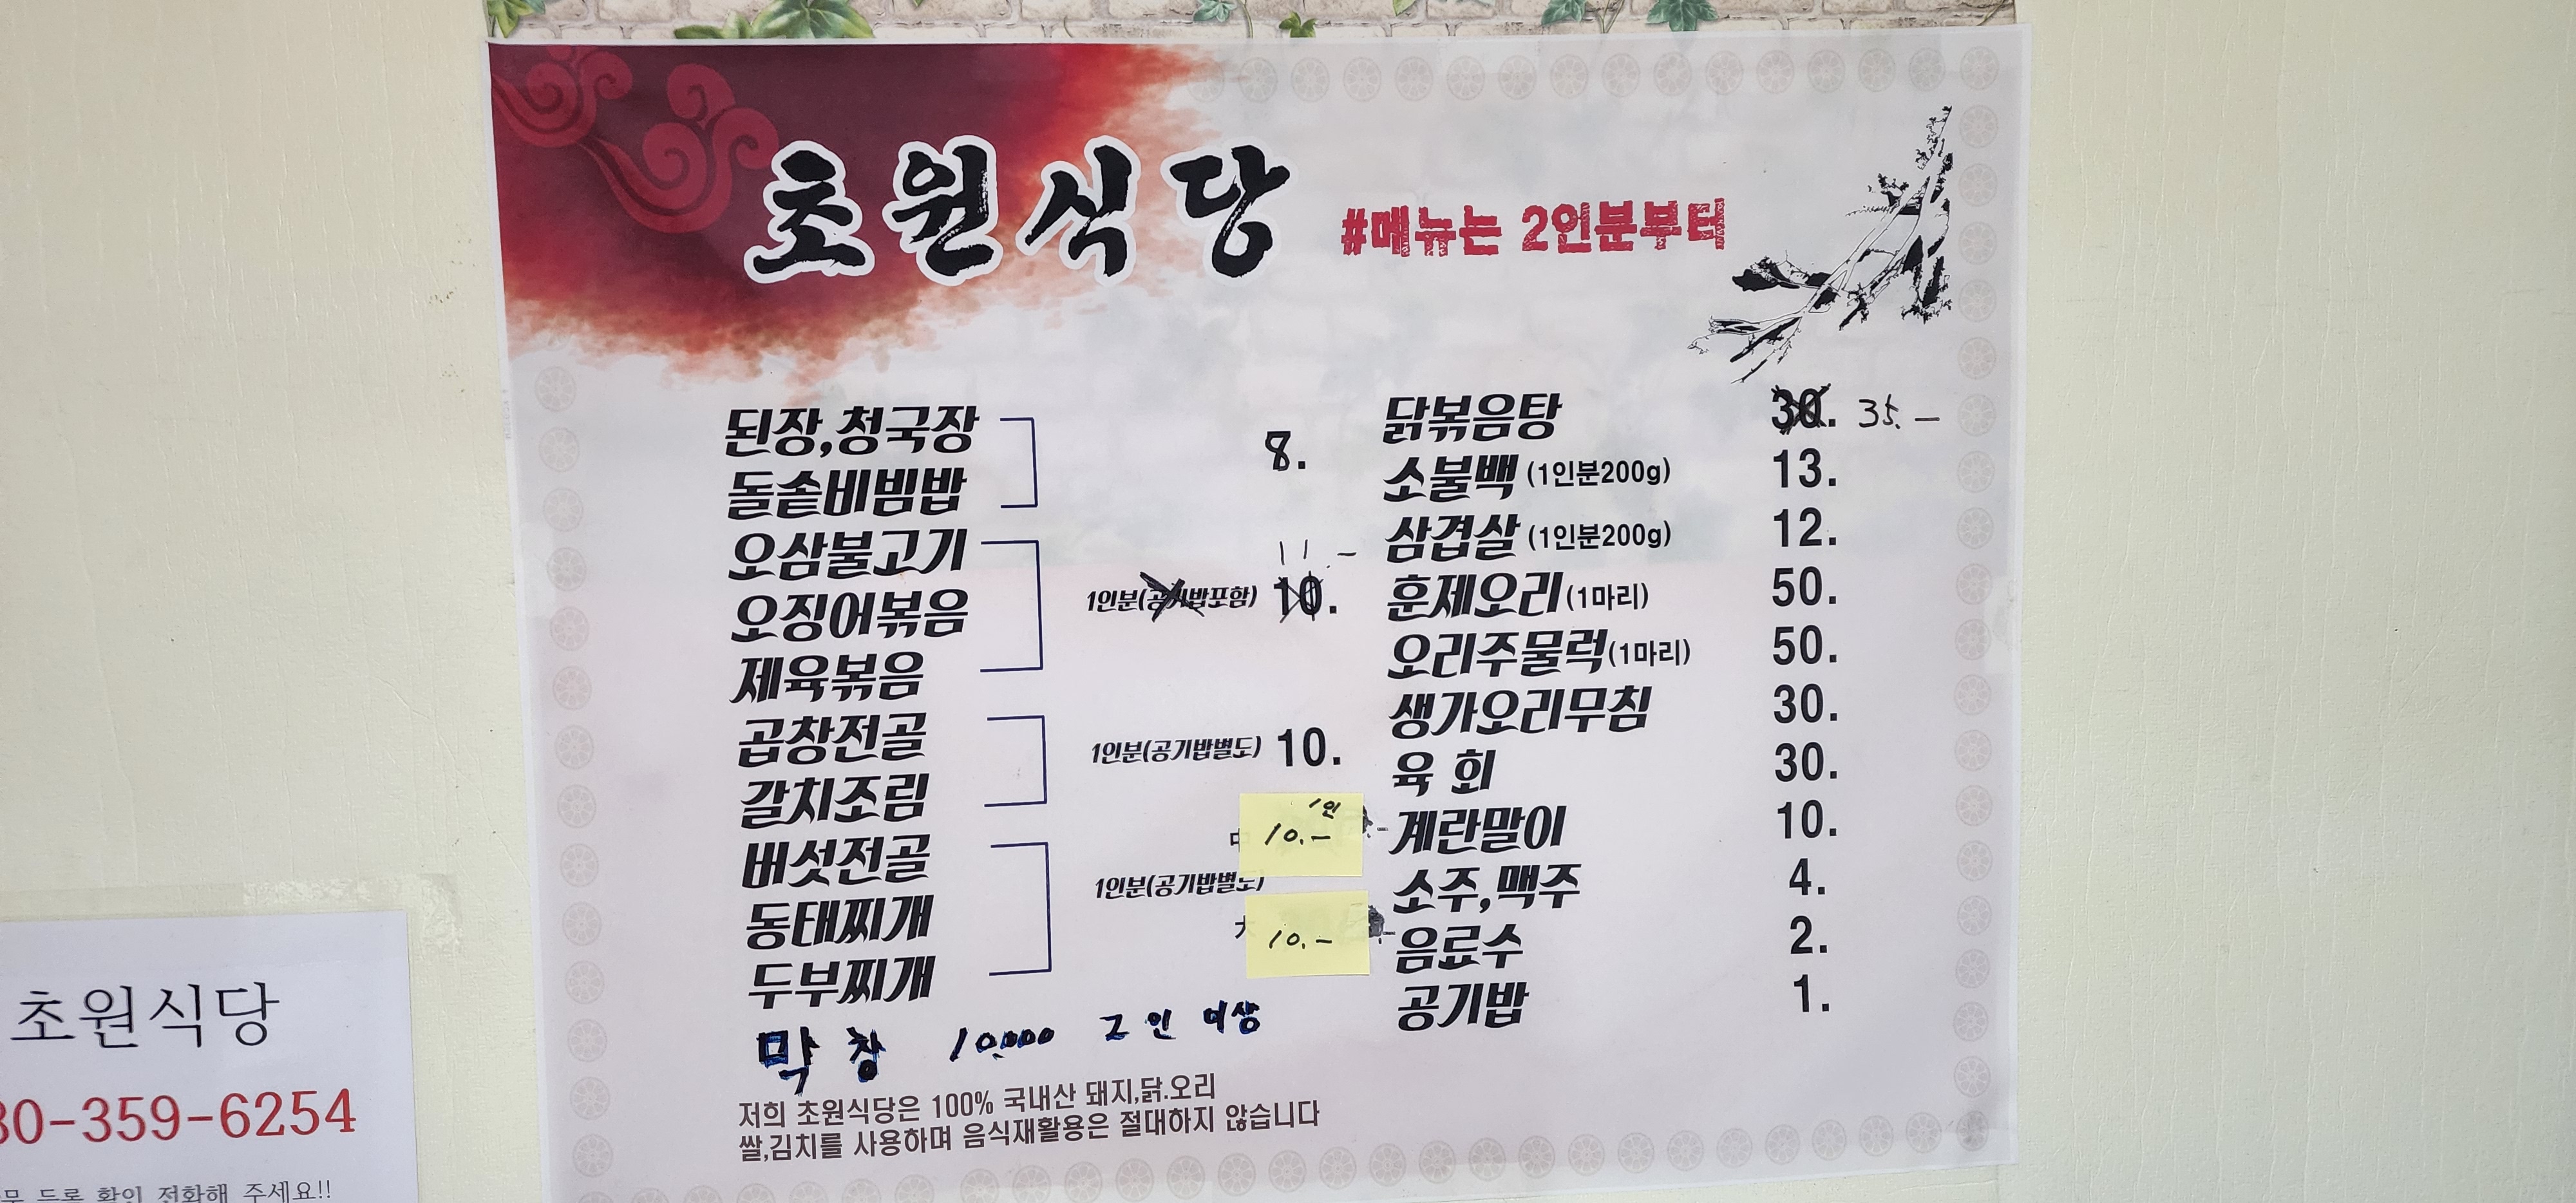 초원식당
#메뉴는 2인분부터
된장,청국장
돌솥비빔밥
8.
오삼불고기
오징어볶음
제육볶음
11.-
1인분(공기밥포함) 10.
곱창전골
갈치조림
1인분(공기밥별도) 10.
버섯전골
동태찌개
두부찌개
中
1인
10.-
1인분(공기밥별도)
大
10.-
막창 10,000 2인 이상
닭볶음탕 30. 35.-
소불백 (1인분200g) 13.
삼겹살 (1인분200g) 12.
훈제오리(1마리) 50.
오리주물럭(1마리) 50.
생가오리무침 30.
육 회 30.
계란말이 10.
소주,맥주 4.
음료수 2.
공기밥 1.
저희 초원식당은 100% 국내산 돼지,닭.오리
쌀,김치를 사용하며 음식재활용은 절대하지 않습니다
초원식당
80-359-6254
등록 확인 전화해 주세요!!